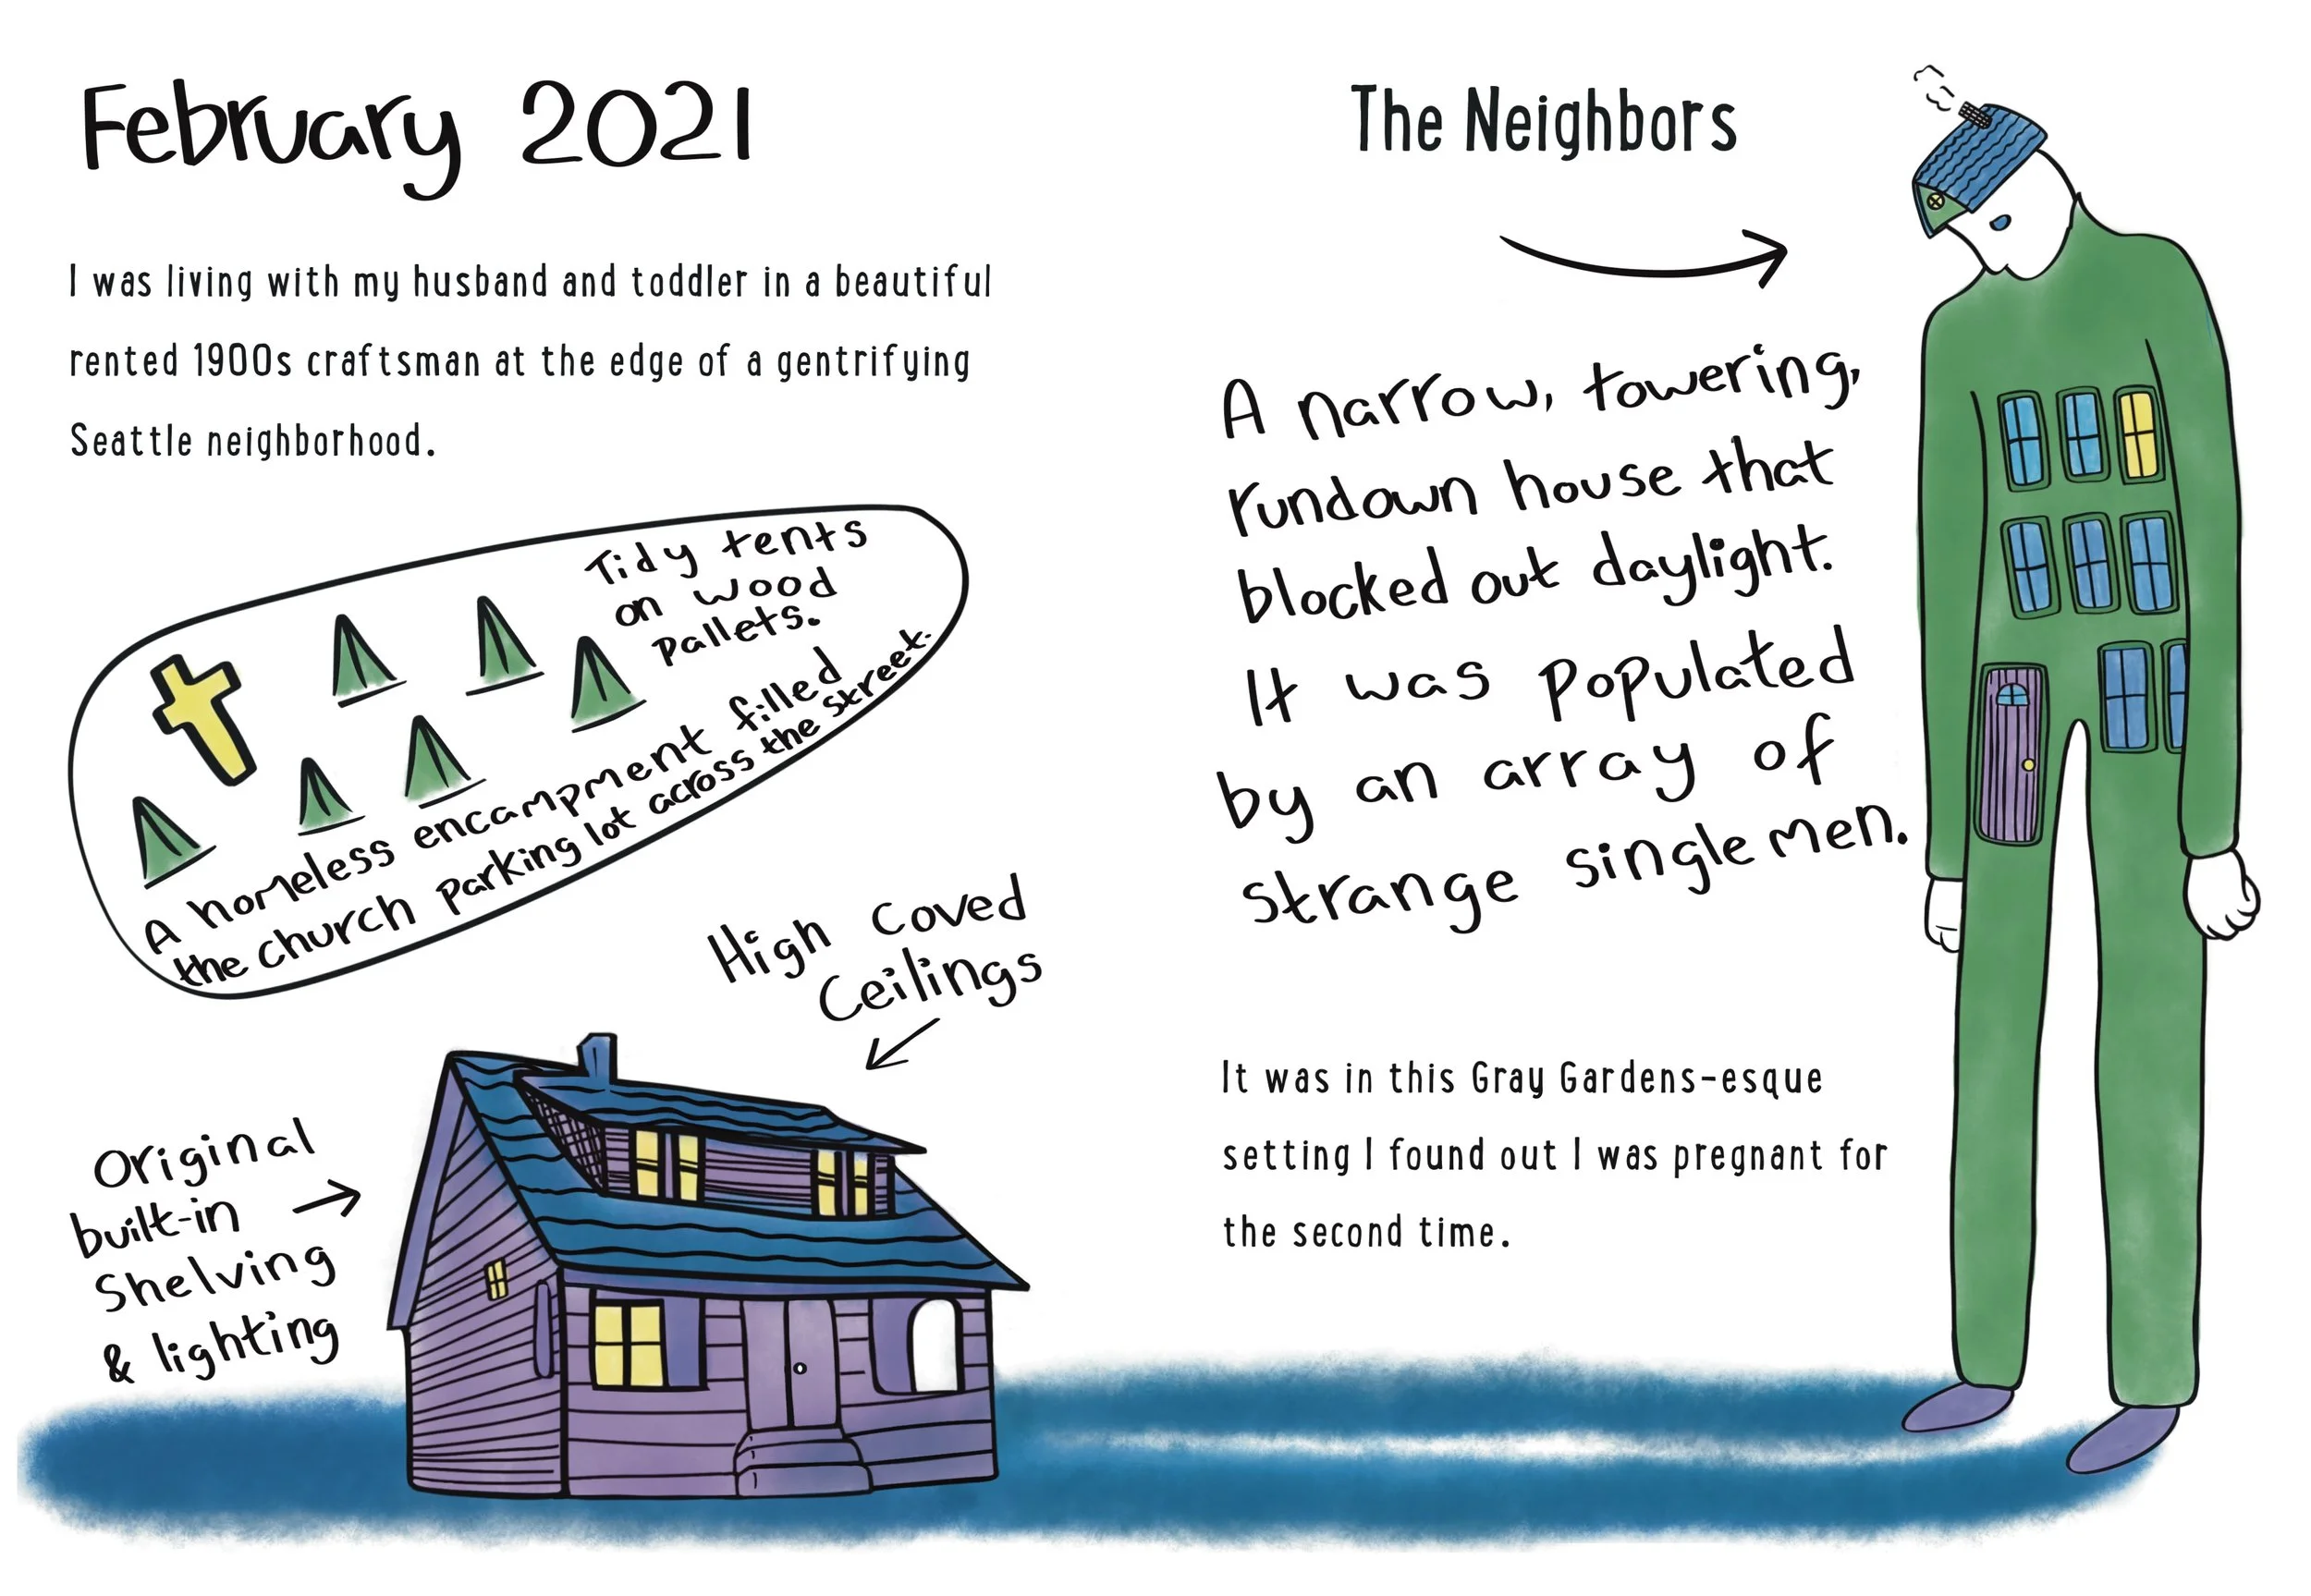 February 2021
I was living with my husband and toddler in a beautiful
rented 1900s craftsman at the edge of a gentrifying
Seattle neighborhood.
Tidy tents
on wood
pallets.
A homeless encampment filled
the church parking lot across the street.
High Coved
Ceilings
Original
built-in
Shelving
& lighting
The Neighbors
A narrow, towering,
rundown house that
blocked out daylight.
It was populated
by an array of
strange single men.
It was in this Gray Gardens-esque
setting I found out I was pregnant for
the second time.